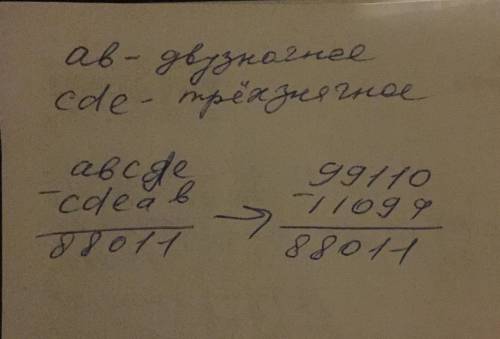 ab - двузначное
cde - трёхзначное
abcde
- cdeab
88011
→
99110
- 11099
88011